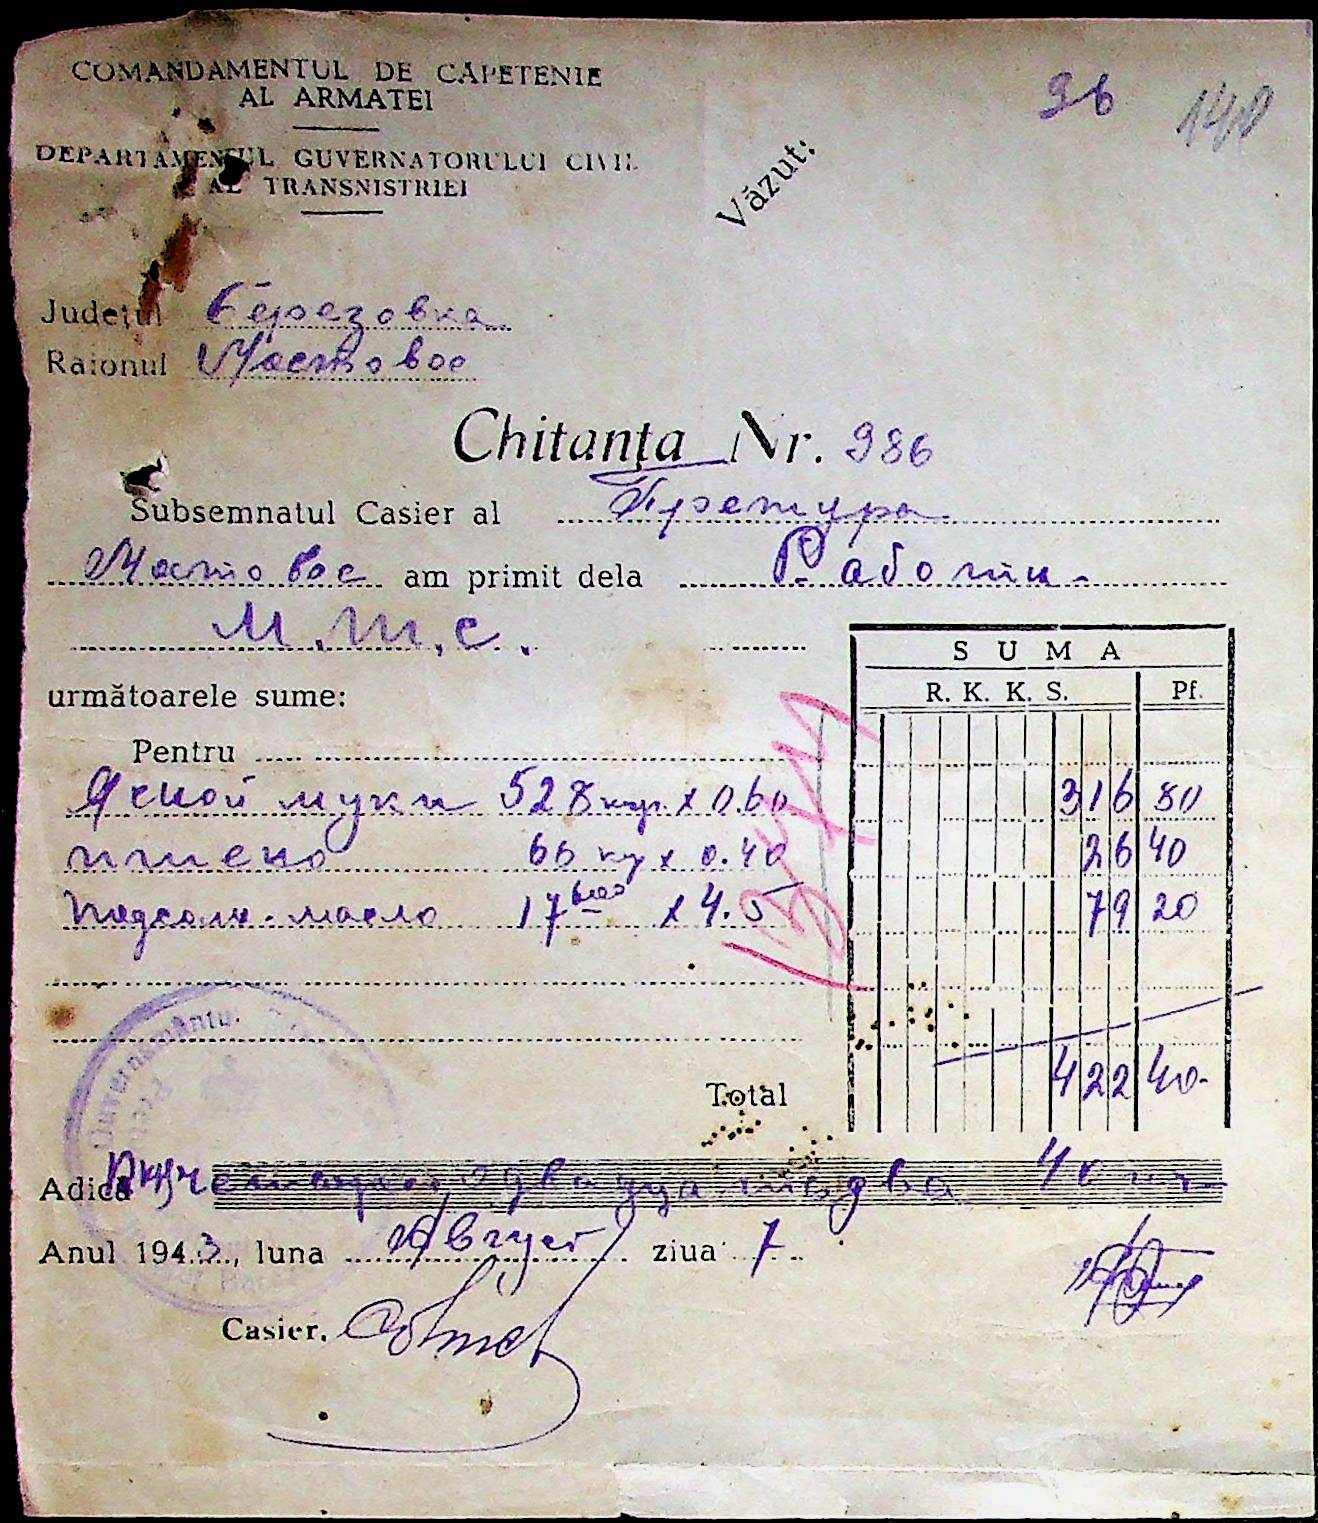 COMANDAMENTUL DE CĂPETENIE
AL ARMATEI
DEPARTAMENTUL GUVERNATORULUI CIVIL
AL TRANSNISTRIEI
96 140
Văzut:
Județul Березовка
Raionul Мастовое
Chitanța Nr. 986
Subsemnatul Casier al Претура
Мастовое am primit dela Работн.
М.Т.С.
următoarele sume:
Pentru
SUMA
R. K. K. S. Pf.
муки 528 кгр. x 0.60 316 80
пшено 66 кгр x 0.40 26 40
Подсолн. масло 17 x 4.5 79 20
Total 422 40
Adică двадцать два 40
Anul 1943, luna Август ziua 7
Casier,